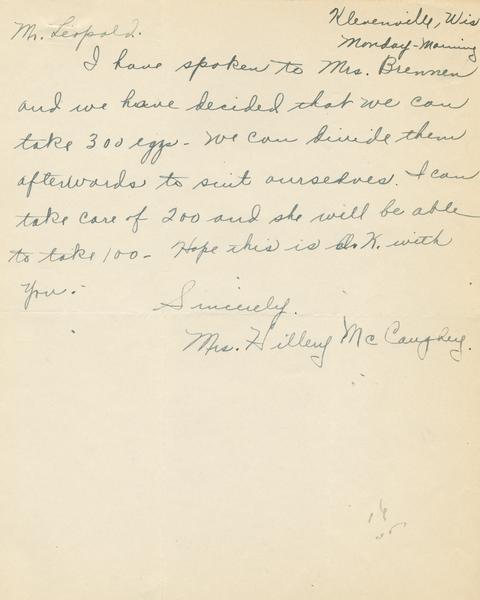 Klevenville, Wis
Monday-Morning
Mr. Leopold.
I have spoken to Mrs. Brennen
and we have decided that we can
take 300 eggs - We can divide them
afterwards to suit ourselves. I can
take care of 200 and she will be able
to take 100 - Hope this is O.K. with
you.
Sincerely,
Mrs. Hillery McCaughey.